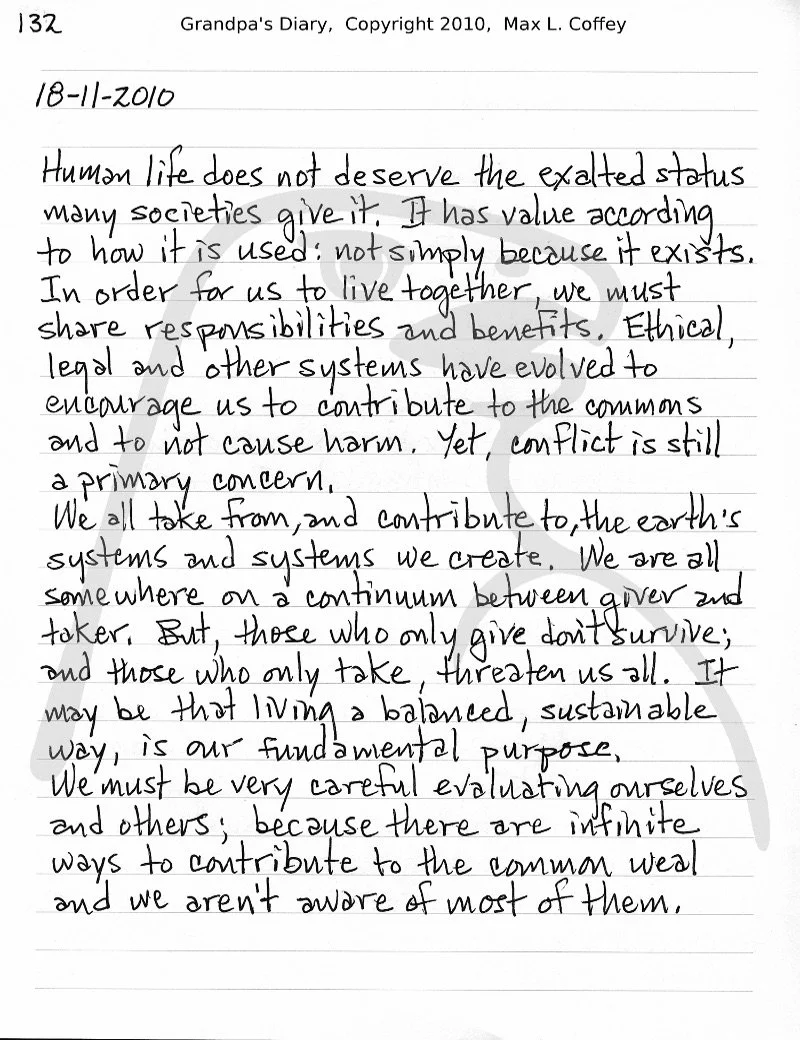 132
Grandpa's Diary, Copyright 2010, Max L. Coffey
18-11-2010
Human life does not deserve the exalted status
many societies give it. It has value according
to how it is used: not simply because it exists.
In order for us to live together, we must
share responsibilities and benefits. Ethical,
legal and other systems have evolved to
encourage us to contribute to the commons
and to not cause harm. Yet, conflict is still
a primary concern.
We all take from, and contribute to, the earth's
systems and systems we create. We are all
somewhere on a continuum between giver and
taker. But, those who only give don't survive;
and those who only take, threaten us all. It
may be that living a balanced, sustainable
way, is our fundamental purpose.
We must be very careful evaluating ourselves
and others; because there are infinite
ways to contribute to the common weal
and we aren't aware of most of them.